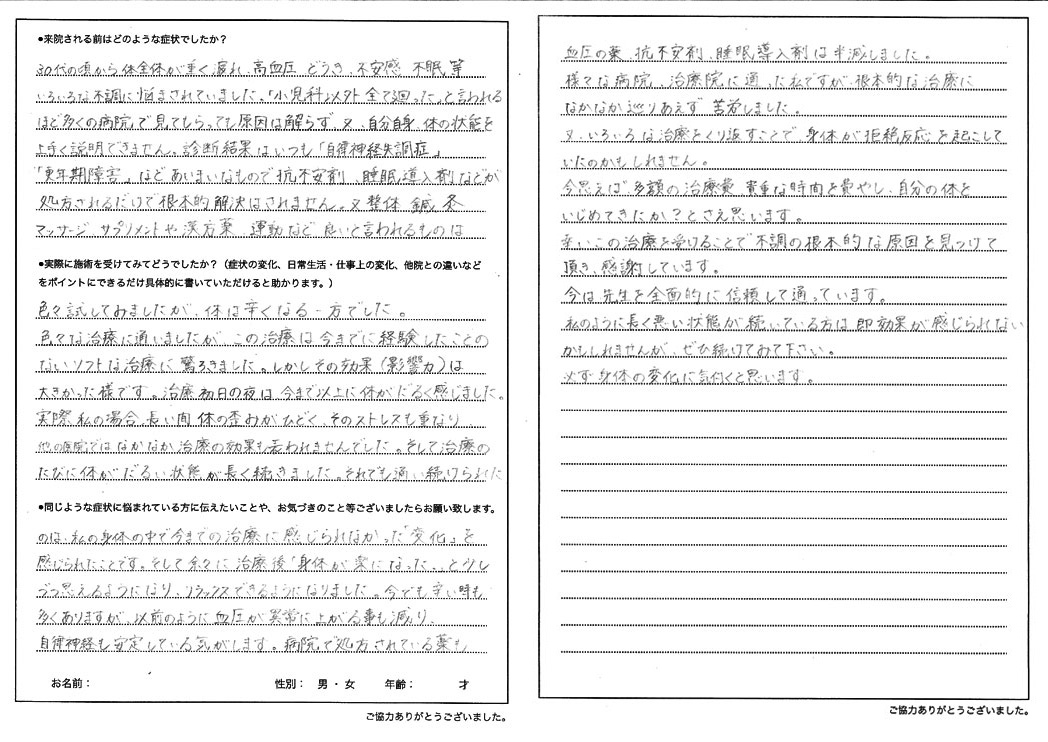 ●来院される前はどのような症状でしたか？
30代の頃から体全体が重く疲れ、高血圧、どうき、不安感、不眠等
いろいろな不調に悩まされていました。「小児科以外全て廻った」と言われる
ほど多くの病院で見てもらっても原因は解らず、又、自分自身、体の状態を
上手く説明できません。診断結果はいつも「自律神経失調症」
「更年期障害」などあいまいなもので抗不安剤、睡眠導入剤などが
処方されるだけで根本的解決はされません。又整体、鍼、灸
マッサージ、サプリメントや漢方薬、運動など良いと言われるものは
●実際に施術を受けてみてどうでしたか？（症状の変化、日常生活・仕事上の変化、他院との違いなど
をポイントにできるだけ具体的に書いていただけると助かります。）
色々試してみましたが、体は辛くなる一方でした。
色々な治療に通いましたが、この治療は今までに経験したことの
ないソフトな治療に驚ろきました。しかしその効果（影響力）は
大きかった様です。治療初日の夜は、今まで以上に体がだるく感じました。
実際、私の場合、長い間、体の歪みがひどく、そのストレスも重なり
他の医院ではなかなか治療の効果も表われませんでした。そして治療の
たびに体がだるい状態が長く続きました。それでも通い続けられた
●同じような症状に悩まれている方に伝えたいことや、お気づきのこと等ございましたらお願い致します。
のは、私の身体の中で今までの治療に感じられなかった「変化」を
感じられたことです。そして徐々に治療後「身体が楽になった、、、と少し
づつ思えるようになり、リラックスできるようになりました。今でも辛い時も
多くありますが、以前のように血圧が異常に上がる事も減り、
自律神経も安定している気がします。病院で処方されている薬も
お名前： 性別： 男 ・ 女 年齢： 才
ご協力ありがとうございました。
血圧の薬、抗不安剤、睡眠導入剤は半減しました。
様々な病院、治療院に通った私ですが、根本的な治療に
なかなか巡りあえず苦労しました。
又、いろいろな治療をくり返すことで、身体が拒絶反応を起こして
いたのかもしれません。
今思えば多額の治療費、貴重な時間を費やし、自分の体を
いじめてきたか？とさえ思います。
幸いこの治療を受けることで不調の根本的な原因を見つけて
頂き、感謝しています。
今は先生を全面的に信頼して通っています。
私のように長く悪い状態が続いている方は即効果が感じられない
かもしれませんが、ぜひ続けてみて下さい。
必ず身体の変化に気付くと思います。
ご協力ありがとうございました。